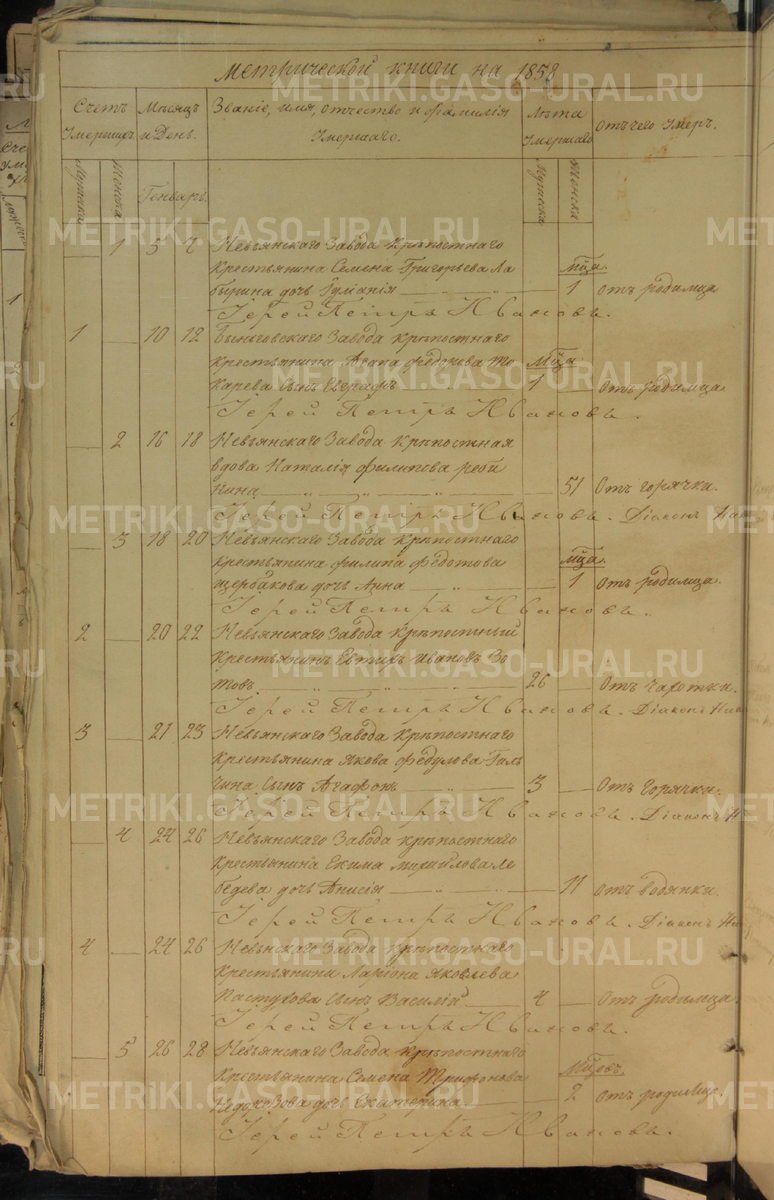 Метрической книги на 1858
Счетъ Умершихъ.
Мѣсяцъ и День.
Званіе, имя, отчество и фамилія Умершаго.
Лѣта Умершаго
Отъ чего Умеръ.
Мужеска Женска Генварь. Мужеска Женска
1 5 7 Невьянскаго Завода Крѣпостнаго
Крестьянина Семена Григорьева Ла Мца.
бырина дочь 1 Отъ родимца
Іерей Петръ Ивановъ.
1 10 12 Быньговскаго Завода Крѣпостнаго
Крестьянина Агапа Федорова То Мца
карева Сынъ Евграфъ 1 Отъ родимца
Іерей Петръ Ивановъ.
2 16 18 Невьянскаго Завода Крѣпостная
вдова Наталія Филипева
51 Отъ горячки.
Іерей Петръ Ивановъ. Діаконъ
3 18 20 Невьянскаго Завода Крѣпостнаго
Крестьянина Филипа Федотова Мца.
Щербакова дочь Анна 1 Отъ родимца.
Іерей Петръ Ивановъ.
2 20 22 Невьянскаго Завода Крѣпостный
Крестьянинъ Иванъ Зо
товъ 26 Отъ чахотки.
Іерей Петръ Ивановъ. Діаконъ
3 21 23 Невьянскаго Завода Крѣпостнаго
Крестьянина Якова Федулова Гал
чина Сынъ Агафонъ 3 Отъ Горячки.
Іерей Петръ Ивановъ. Діаконъ
4 24 26 Невьянскаго Завода Крѣпостнаго
Крестьянина Екима Михайлова Ле
бедева дочь Анисія 11 Отъ водянки.
Іерей Петръ Ивановъ. Діаконъ
4 24 26 Невьнскаго Завода Крѣпостнаго
Крестьянина Ларіона Яковлева
Пастухова Сынъ Василій 4 Отъ родимца.
Іерей Петръ Ивановъ.
5 26 28 Невьянскаго Завода Крѣпостнаго
Крестьянина Семена Трифонова Мцовъ.
дочь Екатерина 2 Отъ родимца.
Іерей Петръ Ивановъ.
METRIKI.GASO-URAL.RU